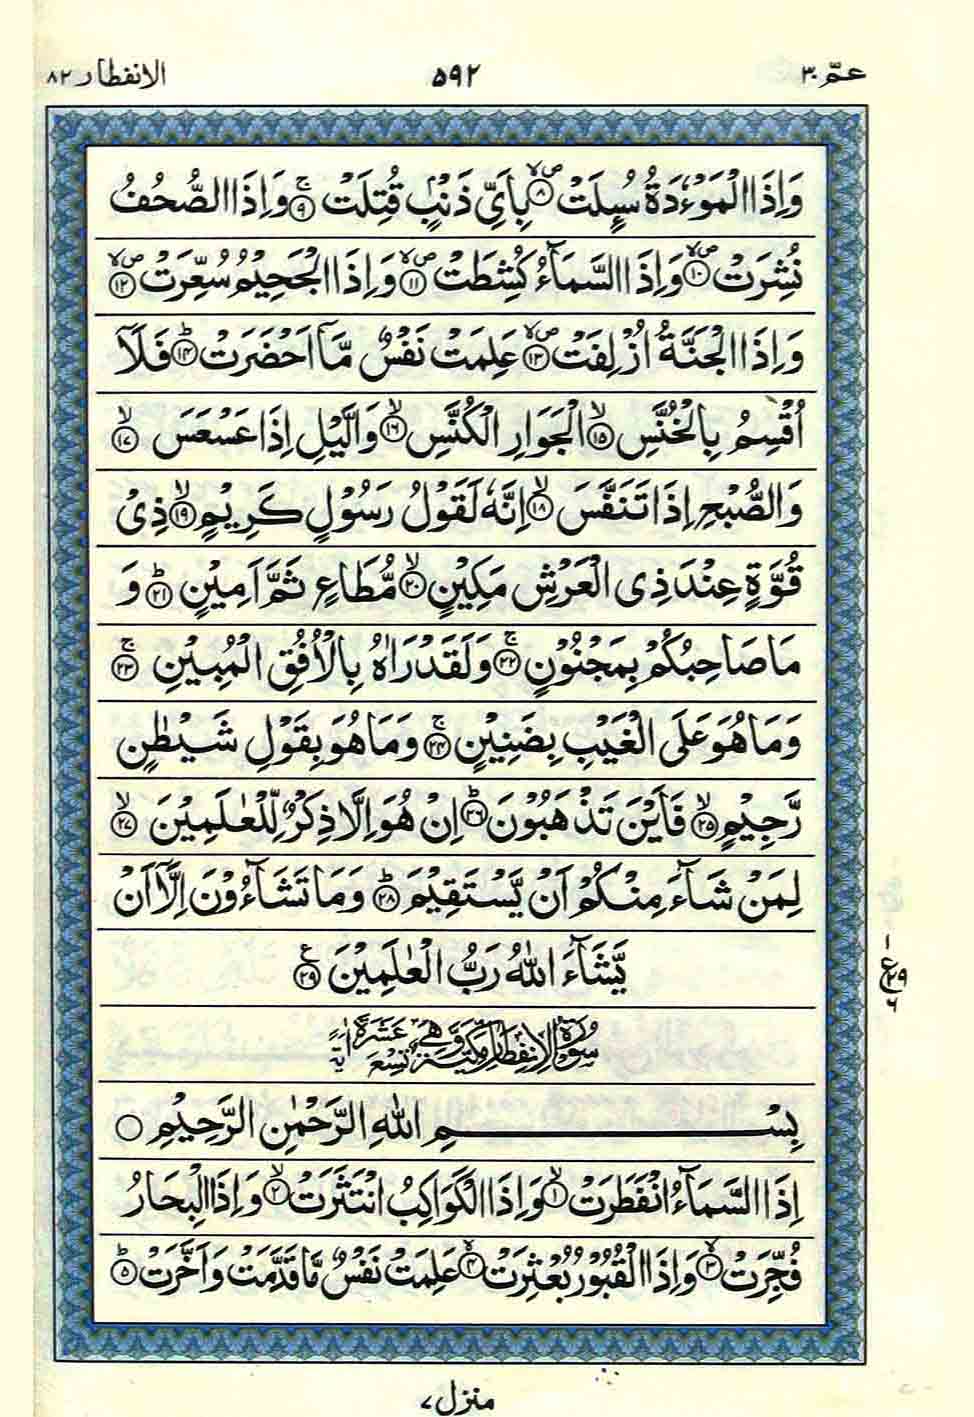 عـمّ ٣٠
٥٩٢
الانفطار ٨٢
وَاِذَا الْمَوْءٗدَةُ سُىِٕلَتْ ۪ۙ‏﴿۸﴾ بِاَیِّ ذَنْۢبٍ قُتِلَتْ ۚ‏﴿۹﴾ وَاِذَا الصُّحُفُ
نُشِرَتْ ۪ۙ‏﴿۱۰﴾ وَاِذَا السَّمَآءُ كُشِطَتْ ۪ۙ‏﴿۱۱﴾ وَاِذَا الْجَحِیْمُ سُعِّرَتْ ۪ۙ‏﴿۱۲﴾
وَاِذَا الْجَنَّةُ اُزْلِفَتْ ۪ۙ‏﴿۱۳﴾ عَلِمَتْ نَفْسٌ مَّاۤ اَحْضَرَتْ ؕ‏﴿۱۴﴾ فَلَاۤ
اُقْسِمُ بِالْخُنَّسِ ۙ‏﴿۱۵﴾ الْجَوَارِ الْكُنَّسِ ۙ‏﴿۱۶﴾ وَالَّیْلِ اِذَا عَسْعَسَ ۙ‏﴿۱۷﴾
وَالصُّبْحِ اِذَا تَنَفَّسَ ۙ‏﴿۱۸﴾ اِنَّهٗ لَقَوْلُ رَسُوْلٍ كَرِیْمٍ ۙ‏﴿۱۹﴾ ذِیْ
قُوَّةٍ عِنْدَ ذِی الْعَرْشِ مَكِیْنٍ ۙ‏﴿۲۰﴾ مُّطَاعٍ ثَمَّ اَمِیْنٍ ؕ‏﴿۲۱﴾ وَ
مَا صَاحِبُكُمْ بِمَجْنُوْنٍ ۚ‏﴿۲۲﴾ وَلَقَدْ رَاٰهُ بِالْاُفُقِ الْمُبِیْنِ ۚ‏﴿۲۳﴾
وَمَا هُوَ عَلَی الْغَیْبِ بِضَنِیْنٍ ۚ‏﴿۲۴﴾ وَمَا هُوَ بِقَوْلِ شَیْطٰنٍ
رَّجِیْمٍ ۙ‏﴿۲۵﴾ فَاَیْنَ تَذْهَبُوْنَ ؕ‏﴿۲۶﴾ اِنْ هُوَ اِلَّا ذِكْرٌ لِّلْعٰلَمِیْنَ ۙ‏﴿۲۷﴾
لِمَنْ شَآءَ مِنْكُمْ اَنْ یَّسْتَقِیْمَ ؕ‏﴿۲۸﴾ وَمَا تَشَآءُوْنَ اِلَّاۤ اَنْ
یَّشَآءَ اللّٰهُ رَبُّ الْعٰلَمِیْنَ ۧ‏﴿۲۹﴾
ع ٢٩ ٦
سُوْرَةُ الْاِنْفِطَارِ مَكِّیَّةٌ وَّهِیَ تِسْعَ عَشَرَةَ اٰیَةً
بِسْمِ اللّٰهِ الرَّحْمٰنِ الرَّحِیْمِ ○
اِذَا السَّمَآءُ انْفَطَرَتْ ۙ‏﴿۱﴾ وَاِذَا الْكَوَاكِبُ انْتَثَرَتْ ۙ‏﴿۲﴾ وَاِذَا الْبِحَارُ
فُجِّرَتْ ۙ‏﴿۳﴾ وَاِذَا الْقُبُوْرُ بُعْثِرَتْ ۙ‏﴿۴﴾ عَلِمَتْ نَفْسٌ مَّا قَدَّمَتْ وَاَخَّرَتْ ؕ‏﴿۵﴾
منزل ٧